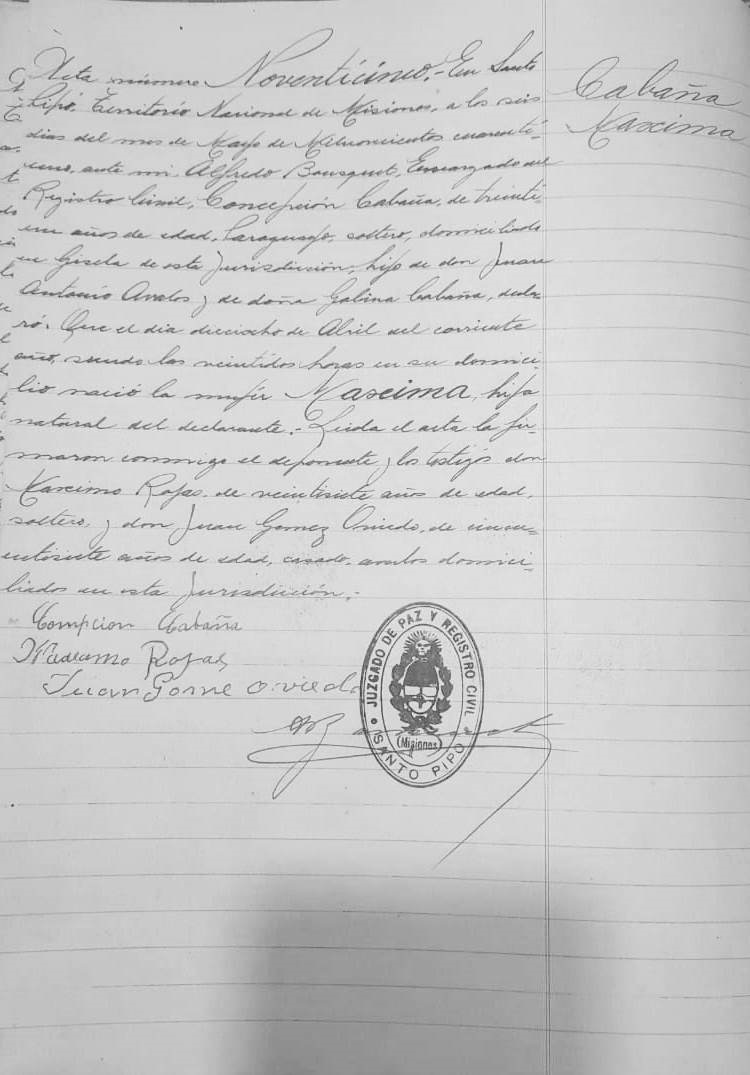 Cabaña
Maxima
Acta número Noventicinco.- En Santo
Pipó, Territorio Nacional de Misiones, a los seis
dias del mes de Mayo de Milnovecientos cuarenti-
uno, ante mi, Alfredo Bousquet, Encargado del
Registro Civil, Concepción Cabaña, de treinti-
un años de edad, Paraguayo, soltero, domiciliado
en Gisela de esta jurisdicción, hijo de don Juan
Antonio Avalos y de doña Gabina Cabaña, decla-
ró: Que el dia dieciocho de Abril del corriente
año, siendo las veintidos horas en su domici-
lio nació la mujer Maxima, hija
natural del declarante.- Leida el acta la fir-
maron conmigo el deponente y los testigos don
Maximo Rojas, de veintisiete años de edad,
soltero, y don Juan Gomez Oviedo, de cincu-
entisiete años de edad, casado, ambos domici-
liados en esta jurisdicción.-
Cabaña
Rojas
Juan Gome Oviedo
JUZGADO DE PAZ Y REGISTRO CIVIL
(Misiones)
SANTO PIPO